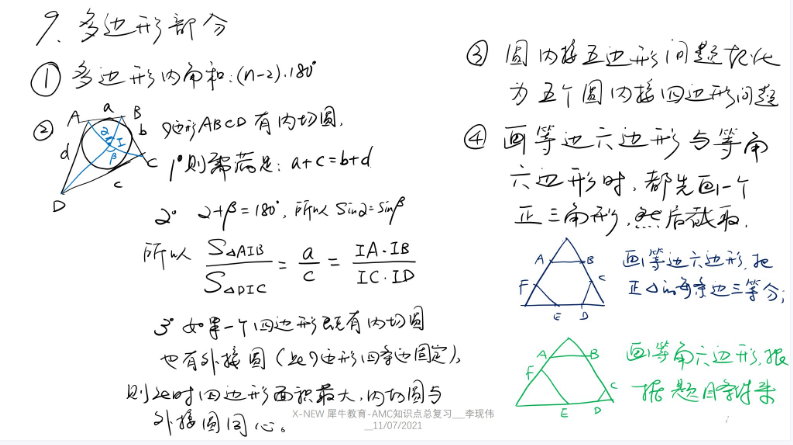 9、多边形部分
① 多边形内角和:(n-2)·180°
② 四边形ABCD有内切圆,
A a B
b
C
c
D
d
I
α
β
1° 则需满足: a+c=b+d
2° α+β=180°, 所以 Sinα=Sinβ
所以 S△AIB / S△DIC = a/c = IA·IB / IC·ID
3° 如果一个四边形既有内切圆
也有外接圆(此四边形四条边固定),
则此时四边形面积最大,内切圆与
外接圆同心。
③ 圆内接五边形问题转化
为五个圆内接四边形问题
④ 画等边六边形与等角
六边形时,都先画一个
正三角形,然后截取.
A B
F C
E D
画等边六边形,把
正△的每条边三等分;
A B
F C
E D
画等角六边形,根
据题目条件来
X-NEW 犀牛教育-AMC知识点总复习__李现伟
__11/07/2021